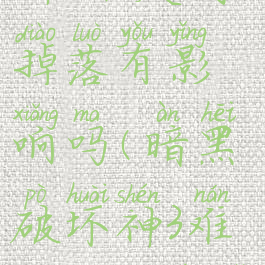 diào luò yǒu yǐng
掉落有影
xiǎng ma àn hēi
响吗(暗黑
pò huài shén nán
破坏神3难